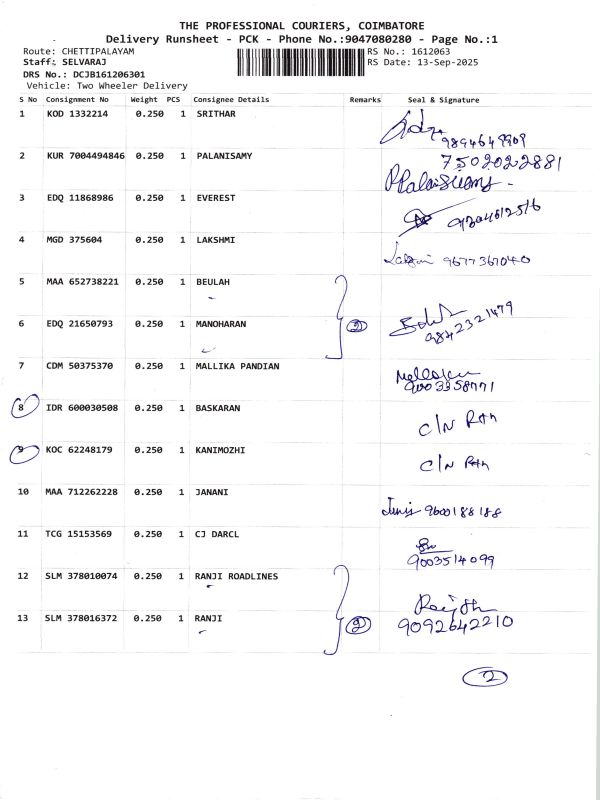 THE PROFESSIONAL COURIERS, COIMBATORE
Delivery Runsheet - PCK - Phone No.:9047080280 - Page No.:1
Route: CHETTIPALAYAM RS No.: 1612063
Staff: SELVARAJ RS Date: 13-Sep-2025
DRS No.: DCJB161206301
Vehicle: Two Wheeler Delivery
S No Consignment No Weight PCS Consignee Details Remarks Seal & Signature
1 KOD 1332214 0.250 1 SRITHAR
9894649909
2 KUR 7004494846 0.250 1 PALANISAMY 7502022881
3 EDQ 11868986 0.250 1 EVEREST
4 MGD 375604 0.250 1 LAKSHMI
9677367040
5 MAA 652738221 0.250 1 BEULAH
6 EDQ 21650793 0.250 1 MANOHARAN 2 9842321479
7 CDM 50375370 0.250 1 MALLIKA PANDIAN
8 IDR 600030508 0.250 1 BASKARAN
C/N Rtn
9 KOC 62248179 0.250 1 KANIMOZHI
C/N Rtn
10 MAA 712262228 0.250 1 JANANI
9600188188
11 TCG 15153569 0.250 1 CJ DARCL
9003514099
12 SLM 378010074 0.250 1 RANJI ROADLINES
13 SLM 378016372 0.250 1 RANJI 2 9092642210
2